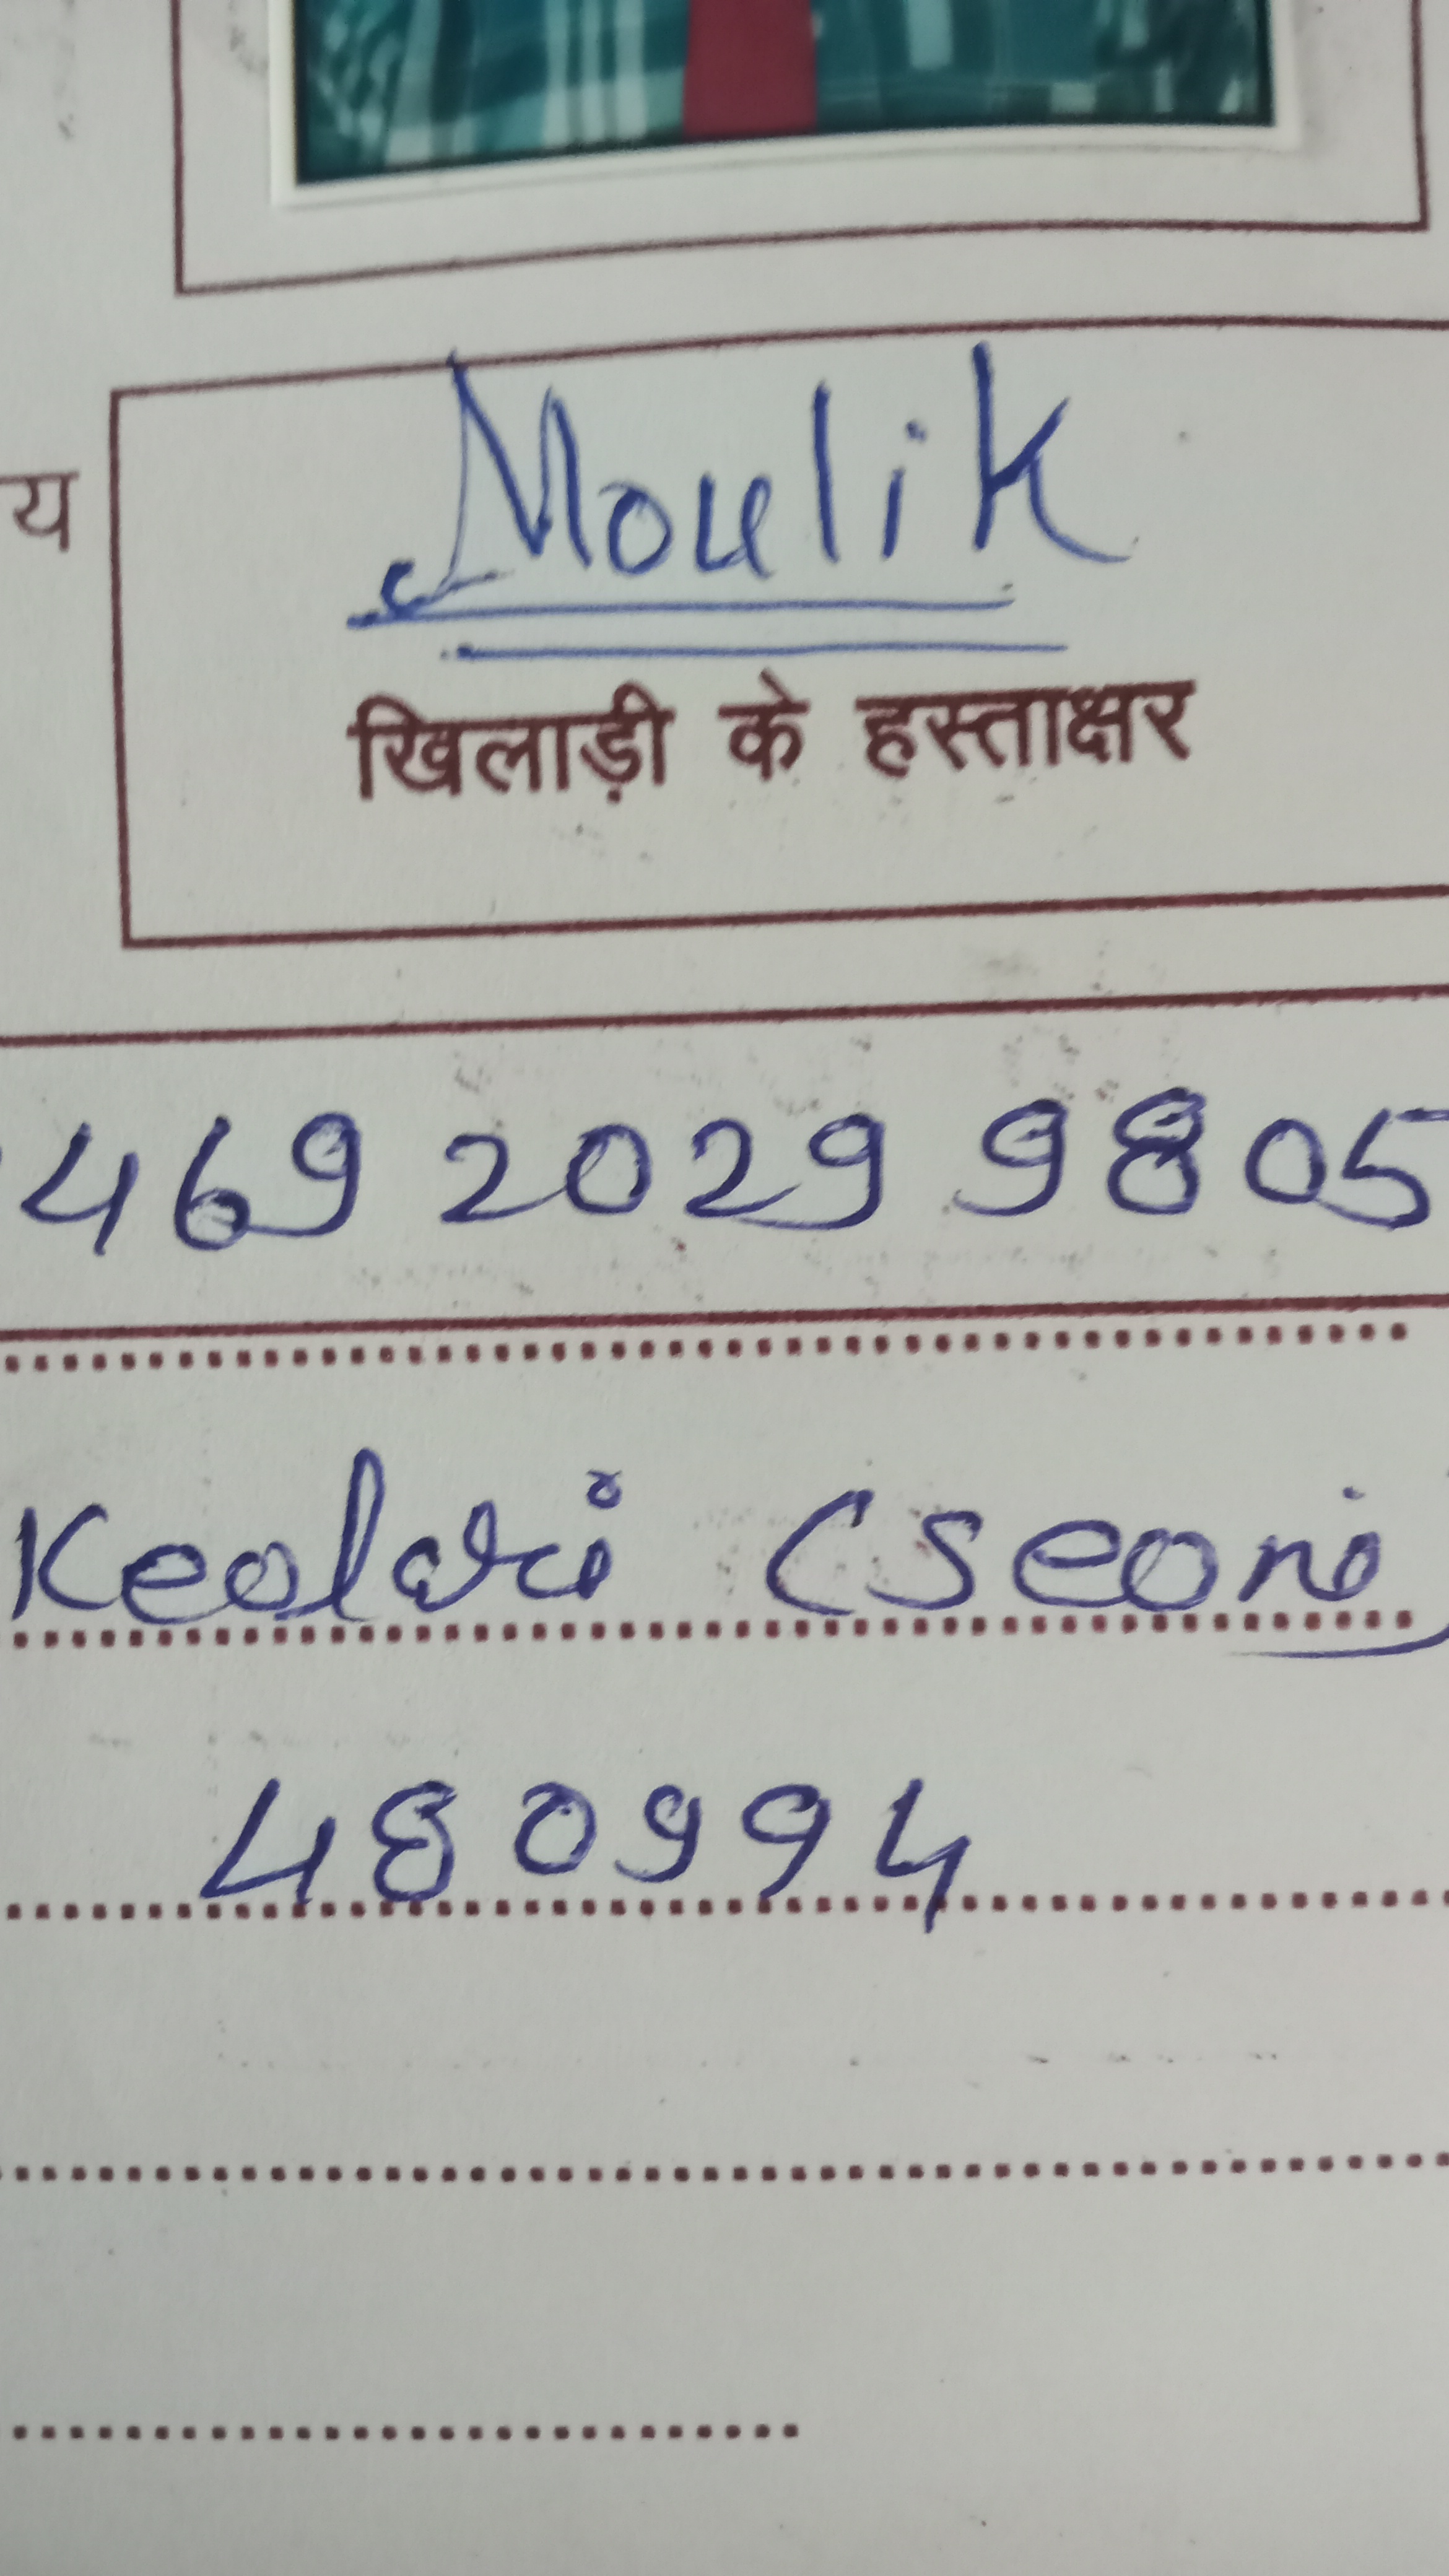 Moulik
य
खिलाड़ी के हस्ताक्षर
469 2029 9805
Keolari (Seoni)
480994